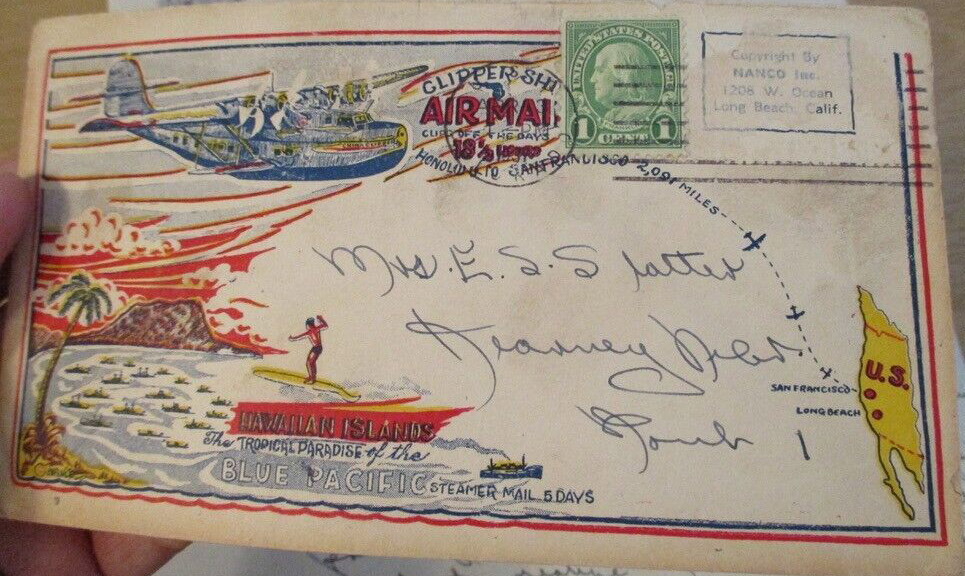 CLIPPER SHI
AIR MAI
CUTS OFF THE DAYS
18½ HOURS
HONOLULU TO SAN FRANCISCO 2,091 MILES
UNITED STATES POSTAGE
1 CENT 1
Copyright By
NANCO Inc.
1208 W. Ocean
Long Beach Calif.
Mrs. E. S. Slatter
Kearney Nebr.
Route 1
U.S.
SAN FRANCISCO
LONG BEACH
HAWAIIAN ISLANDS
The TROPICAL PARADISE of the
BLUE PACIFIC
STEAMER MAIL 5 DAYS